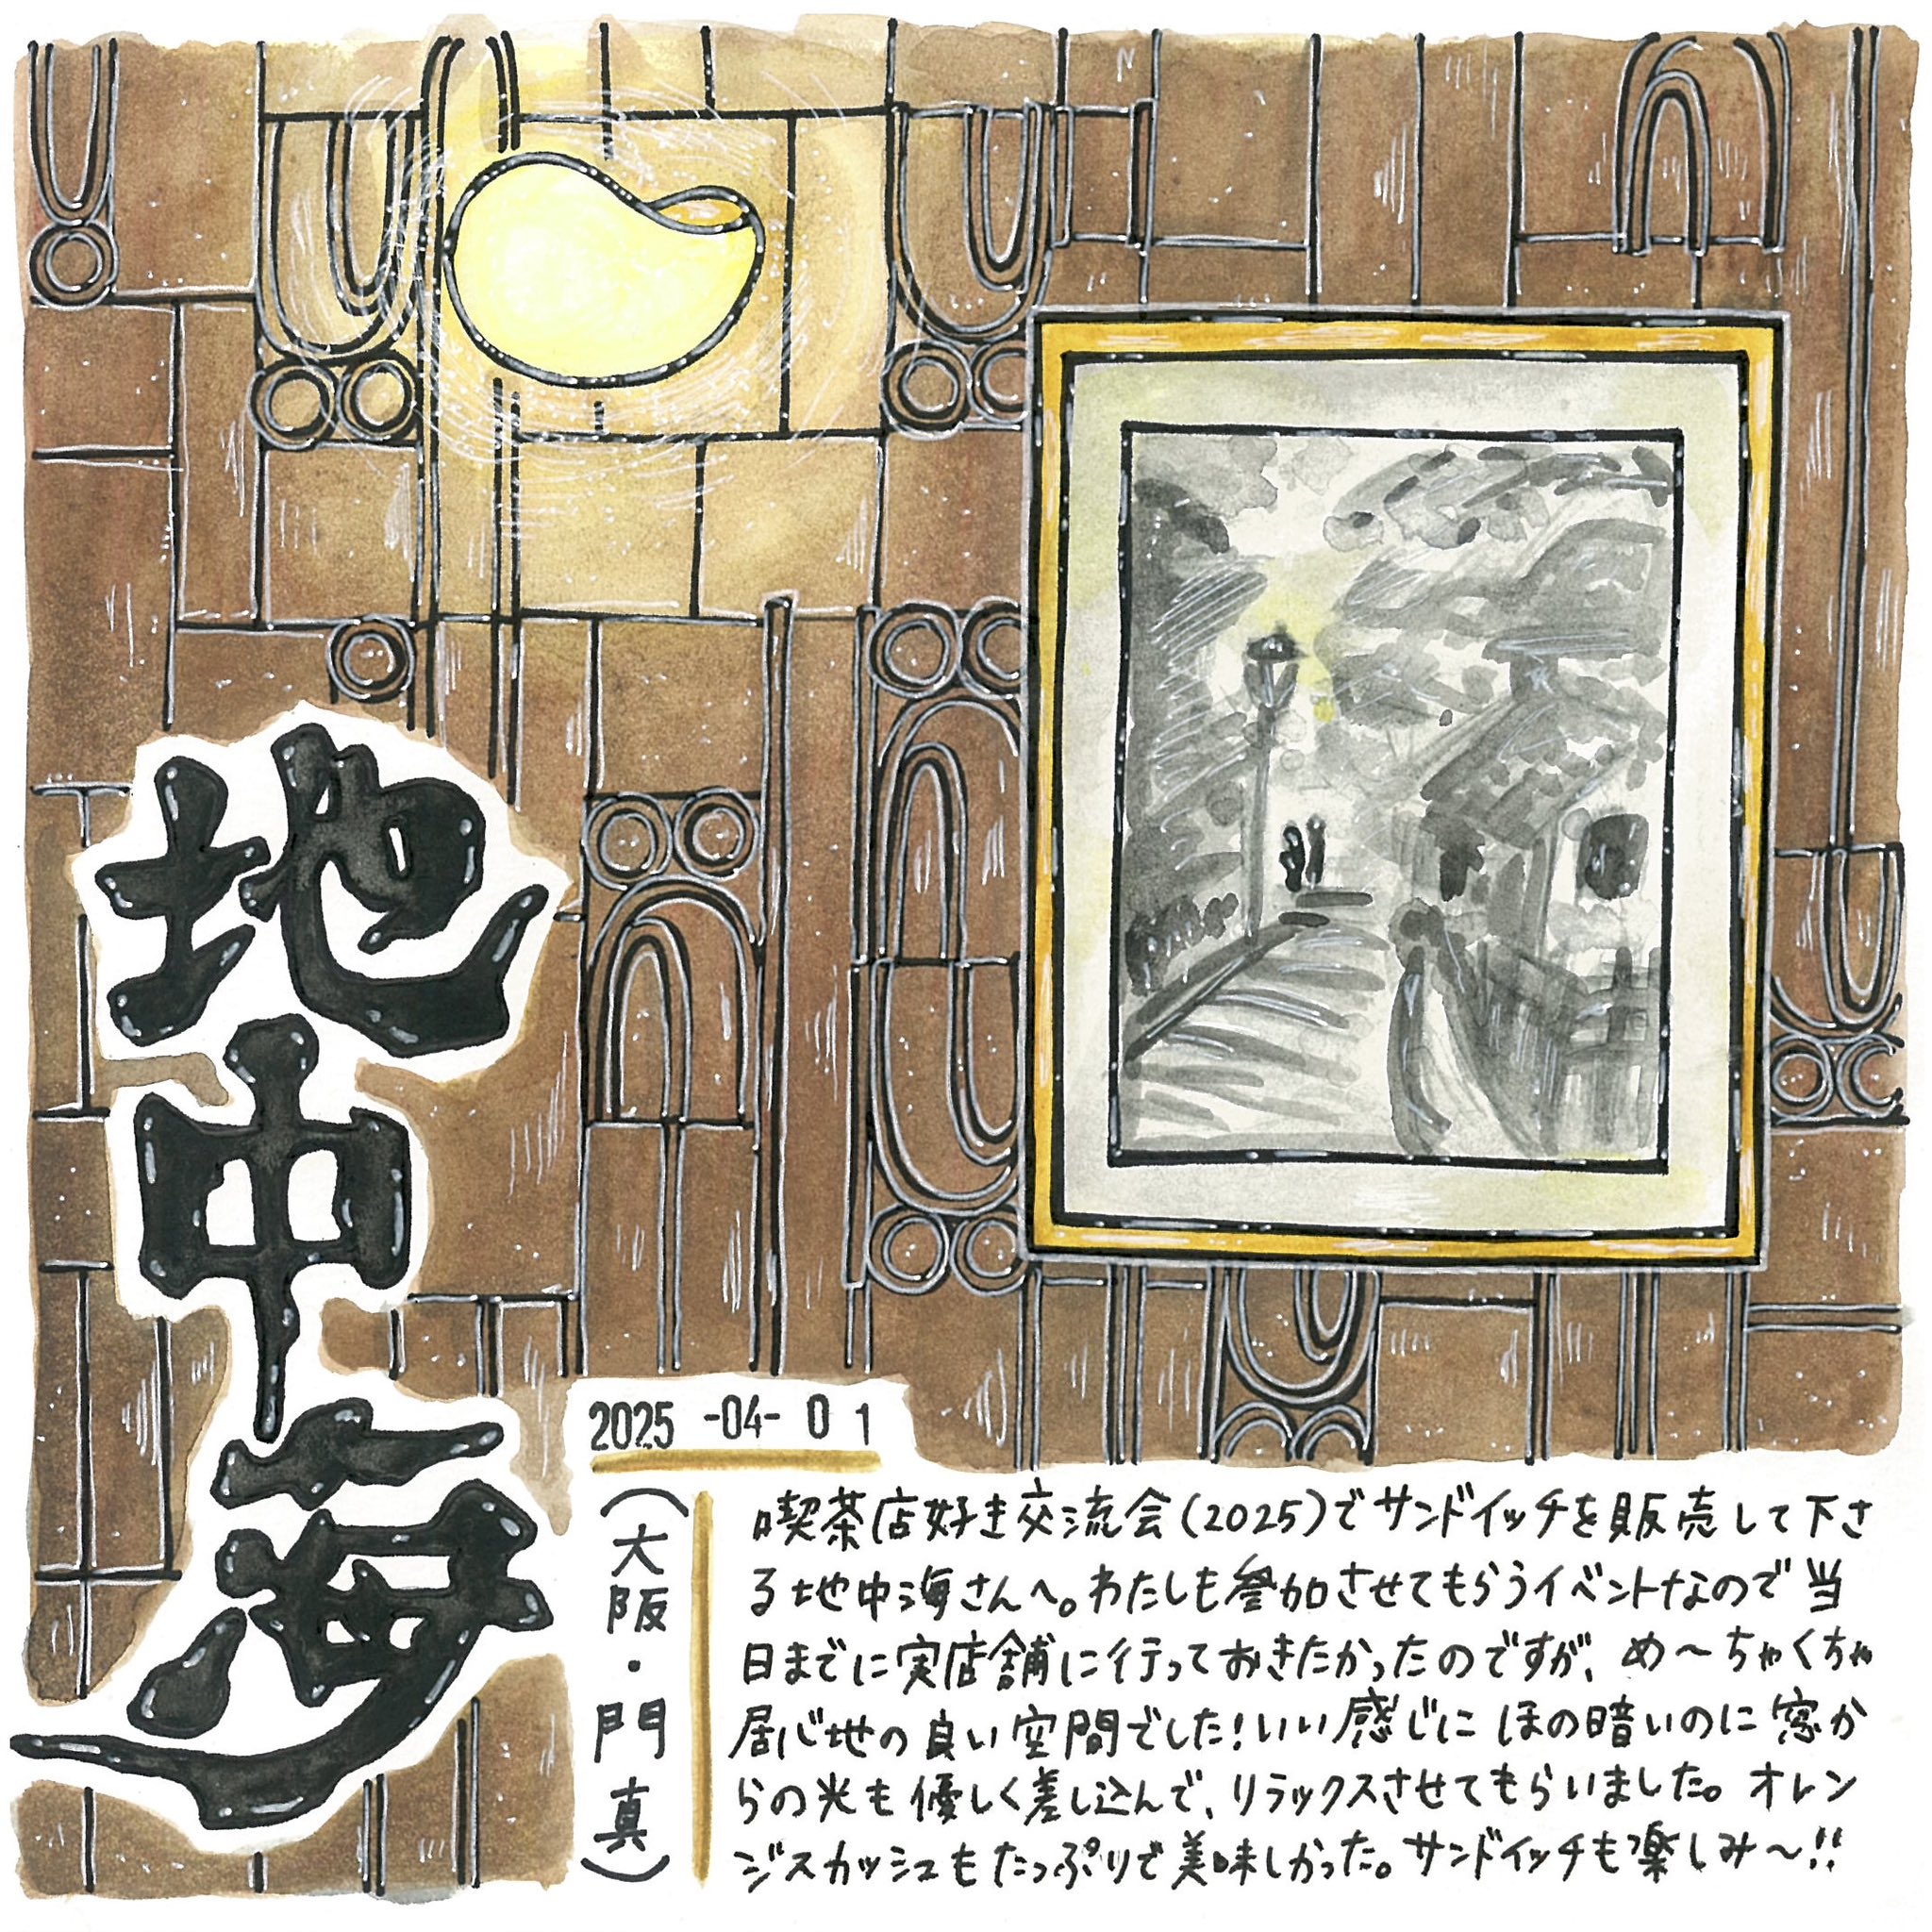 地中海
2025 -04- 01
(大阪・門真)
喫茶店好き交流会(2025)でサンドイッチを販売して下さ
る地中海さんへ。わたしも参加させてもらうイベントなので当
日までに実店舗に行っておきたかったのですが、め〜ちゃくちゃ
居心地の良い空間でした!いい感じにほの暗いのに窓か
らの光も優しく差し込んで、リラックスさせてもらいました。オレン
ジスカッシュもたっぷりで美味しかった。サンドイッチも楽しみ〜!!